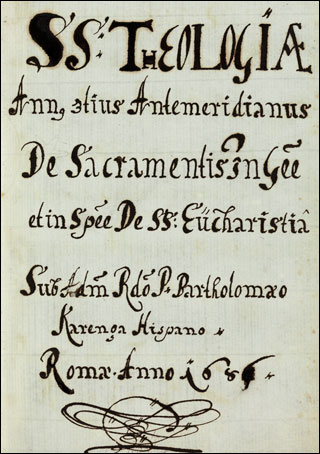 SS: THEOLOGIÆ
Annꝰ 3tius Antemeridianus
De Sacramentis In Gēe
et in Spēe De SS: Eücharistiâ
Sub Adm̄ Rdō P. Partholomæo
Karenga Hispano
Romæ Anno 1686